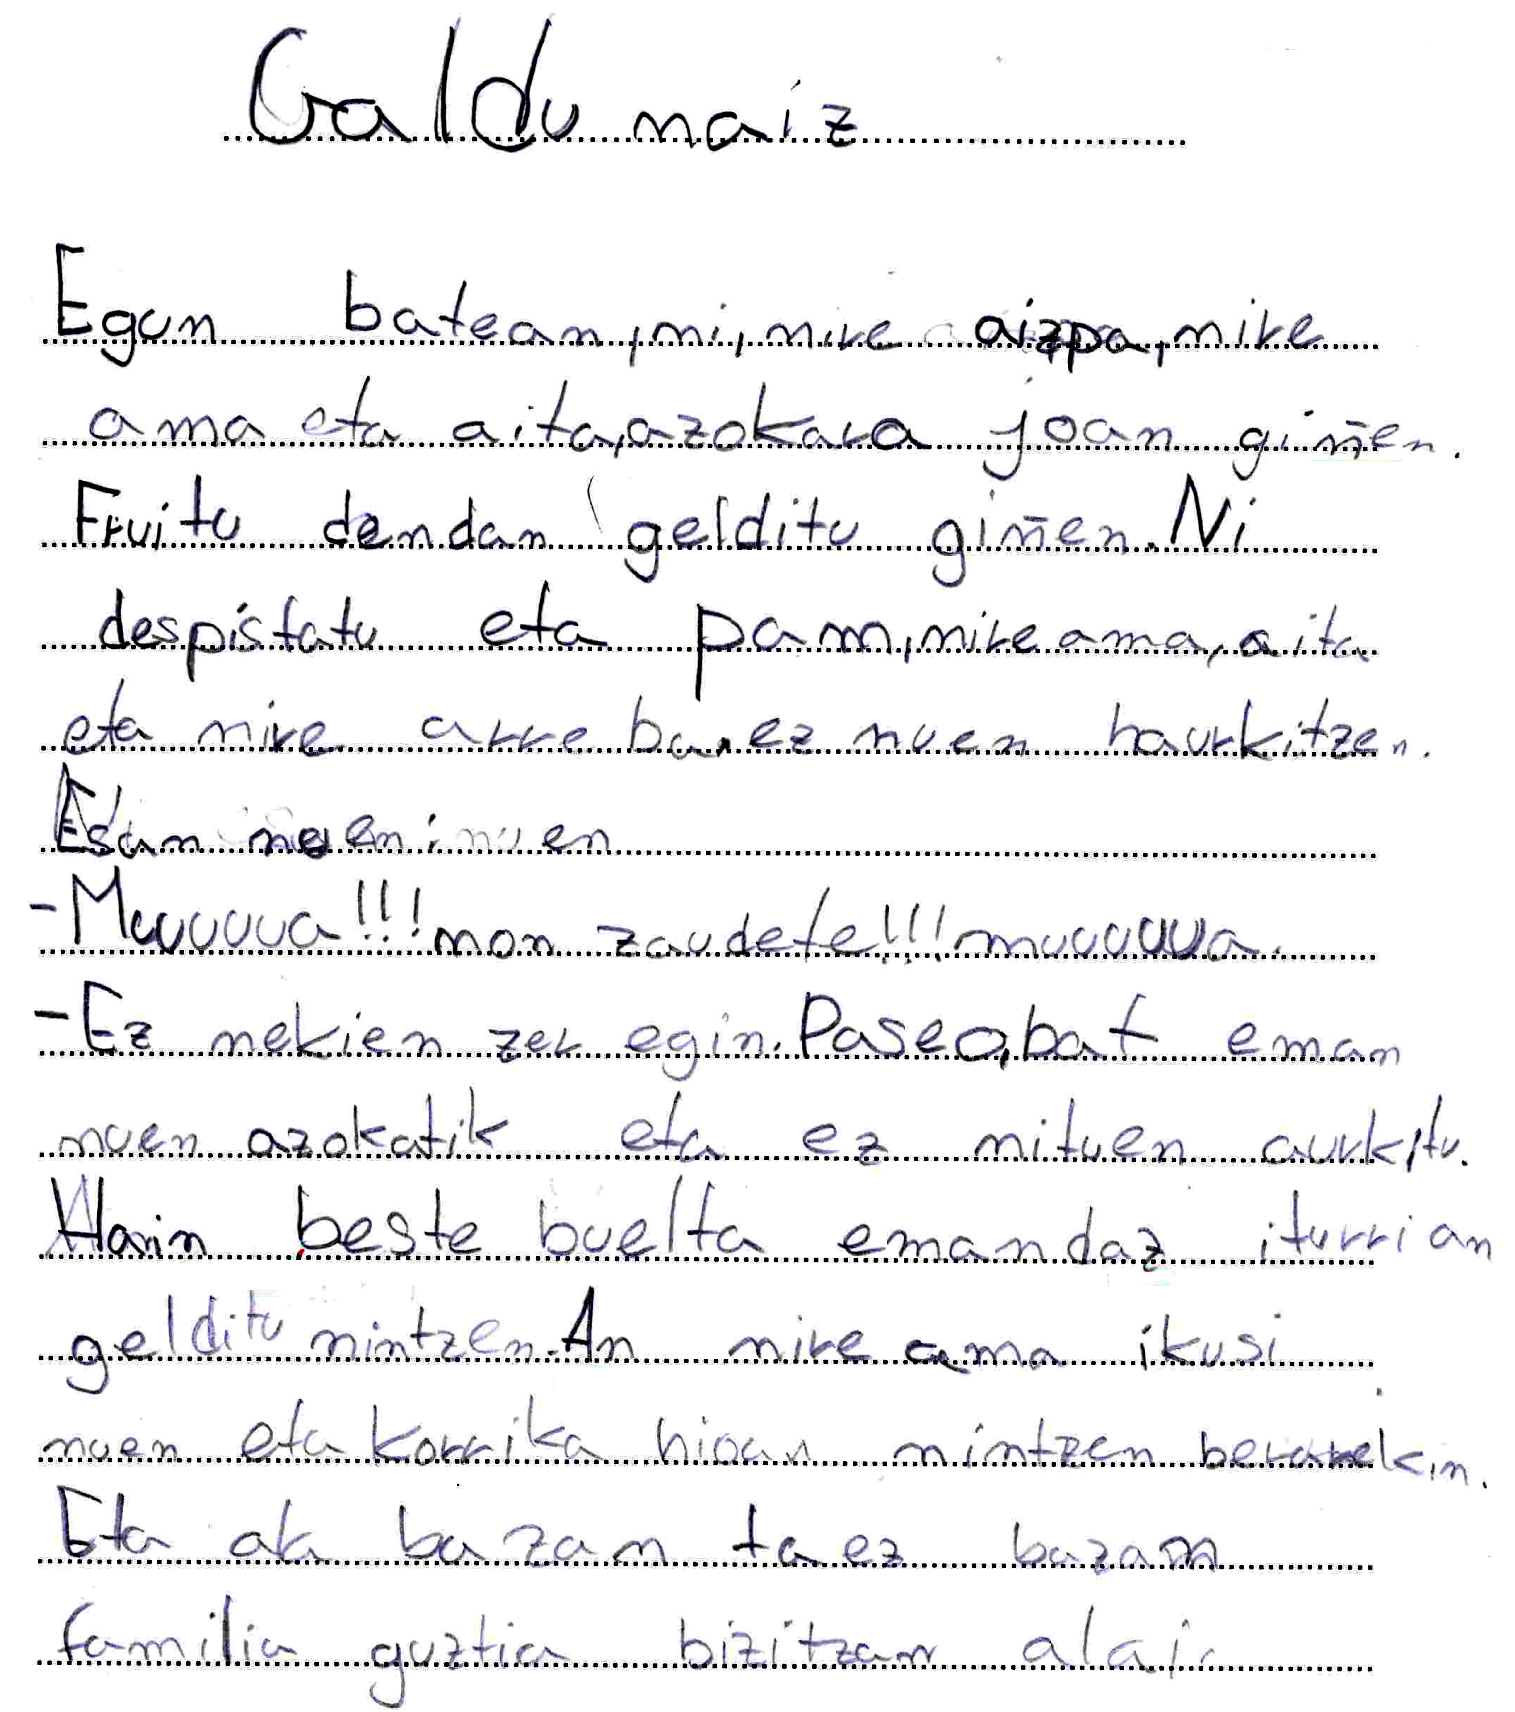 Galdu naiz
Egun batean, ni, nire aizpa, nire
ama eta aita, azokara joan giñen.
Fruitu dendan gelditu giñen. Ni
despistatu eta pam, nire ama, aita
eta nire arreba. ez nuen haurkitzen.
Esan nuen: nuen
-Muuuuua!!! non zaudete!!! muuuuuua.
-Ez nekien zer egin. Paseo, bat eman
nuen azokatik eta ez nituen aurkitu.
Hain beste buelta emandaz iturrian
gelditu nintzen. An nire ama ikusi
nuen eta korrika hioan nintzen berarekin.
Eta ala bazan ta ez bazam
familia guztia bizitzan alai.